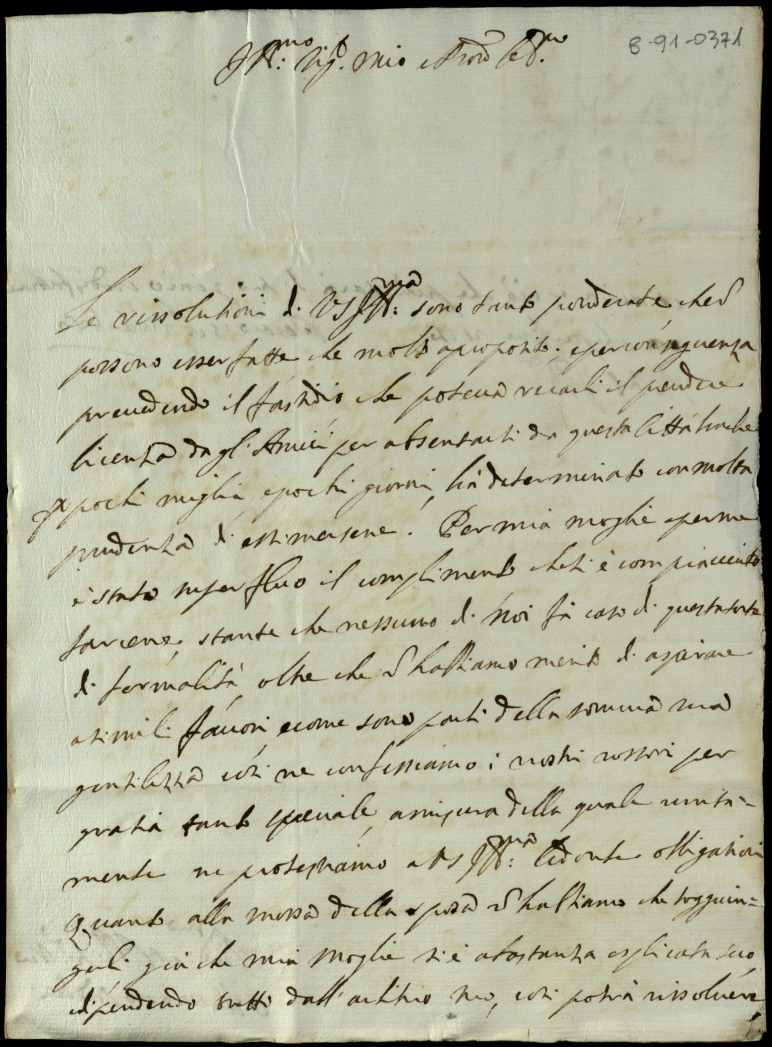 8-91-0371
Ill:mo Sig.r mio e Pron Col.mo
Le rissolutioni di VS Ill:ma sono tanto ponderate che n
possono esser fatte che molto aproposito; e per conseguenza
prevedendo il fastidio che poteva recarli il prendere
licenza dagl'Amici per absentarsi da questa Città benche
p pochi miglia, e pochi giorni, hà determinato con molta
prudenza di estimersene. Per mia moglie e per me
è stato superfluo il complimento che si è compiacciuto
farcene, stante che nessuno di Noi fà caso di questa sorte
di formalità, oltre che n habbiamo merito di aspirare
a simili favori, e come sono parti della somma sua
gentilezza così ne confessiamo i nostri rossori per
gratia tanto speciale, a misura della quale unita=
mente ne protestiamo a VS Ill:ma le dovute obligationi
Quanto alla mossa della sposa n habbiamo che soggiun=
gerli già che mia moglie si è abastanza esplicata seco
dipendendo tutto dall'arbitrio suo, così potrà rissolvere